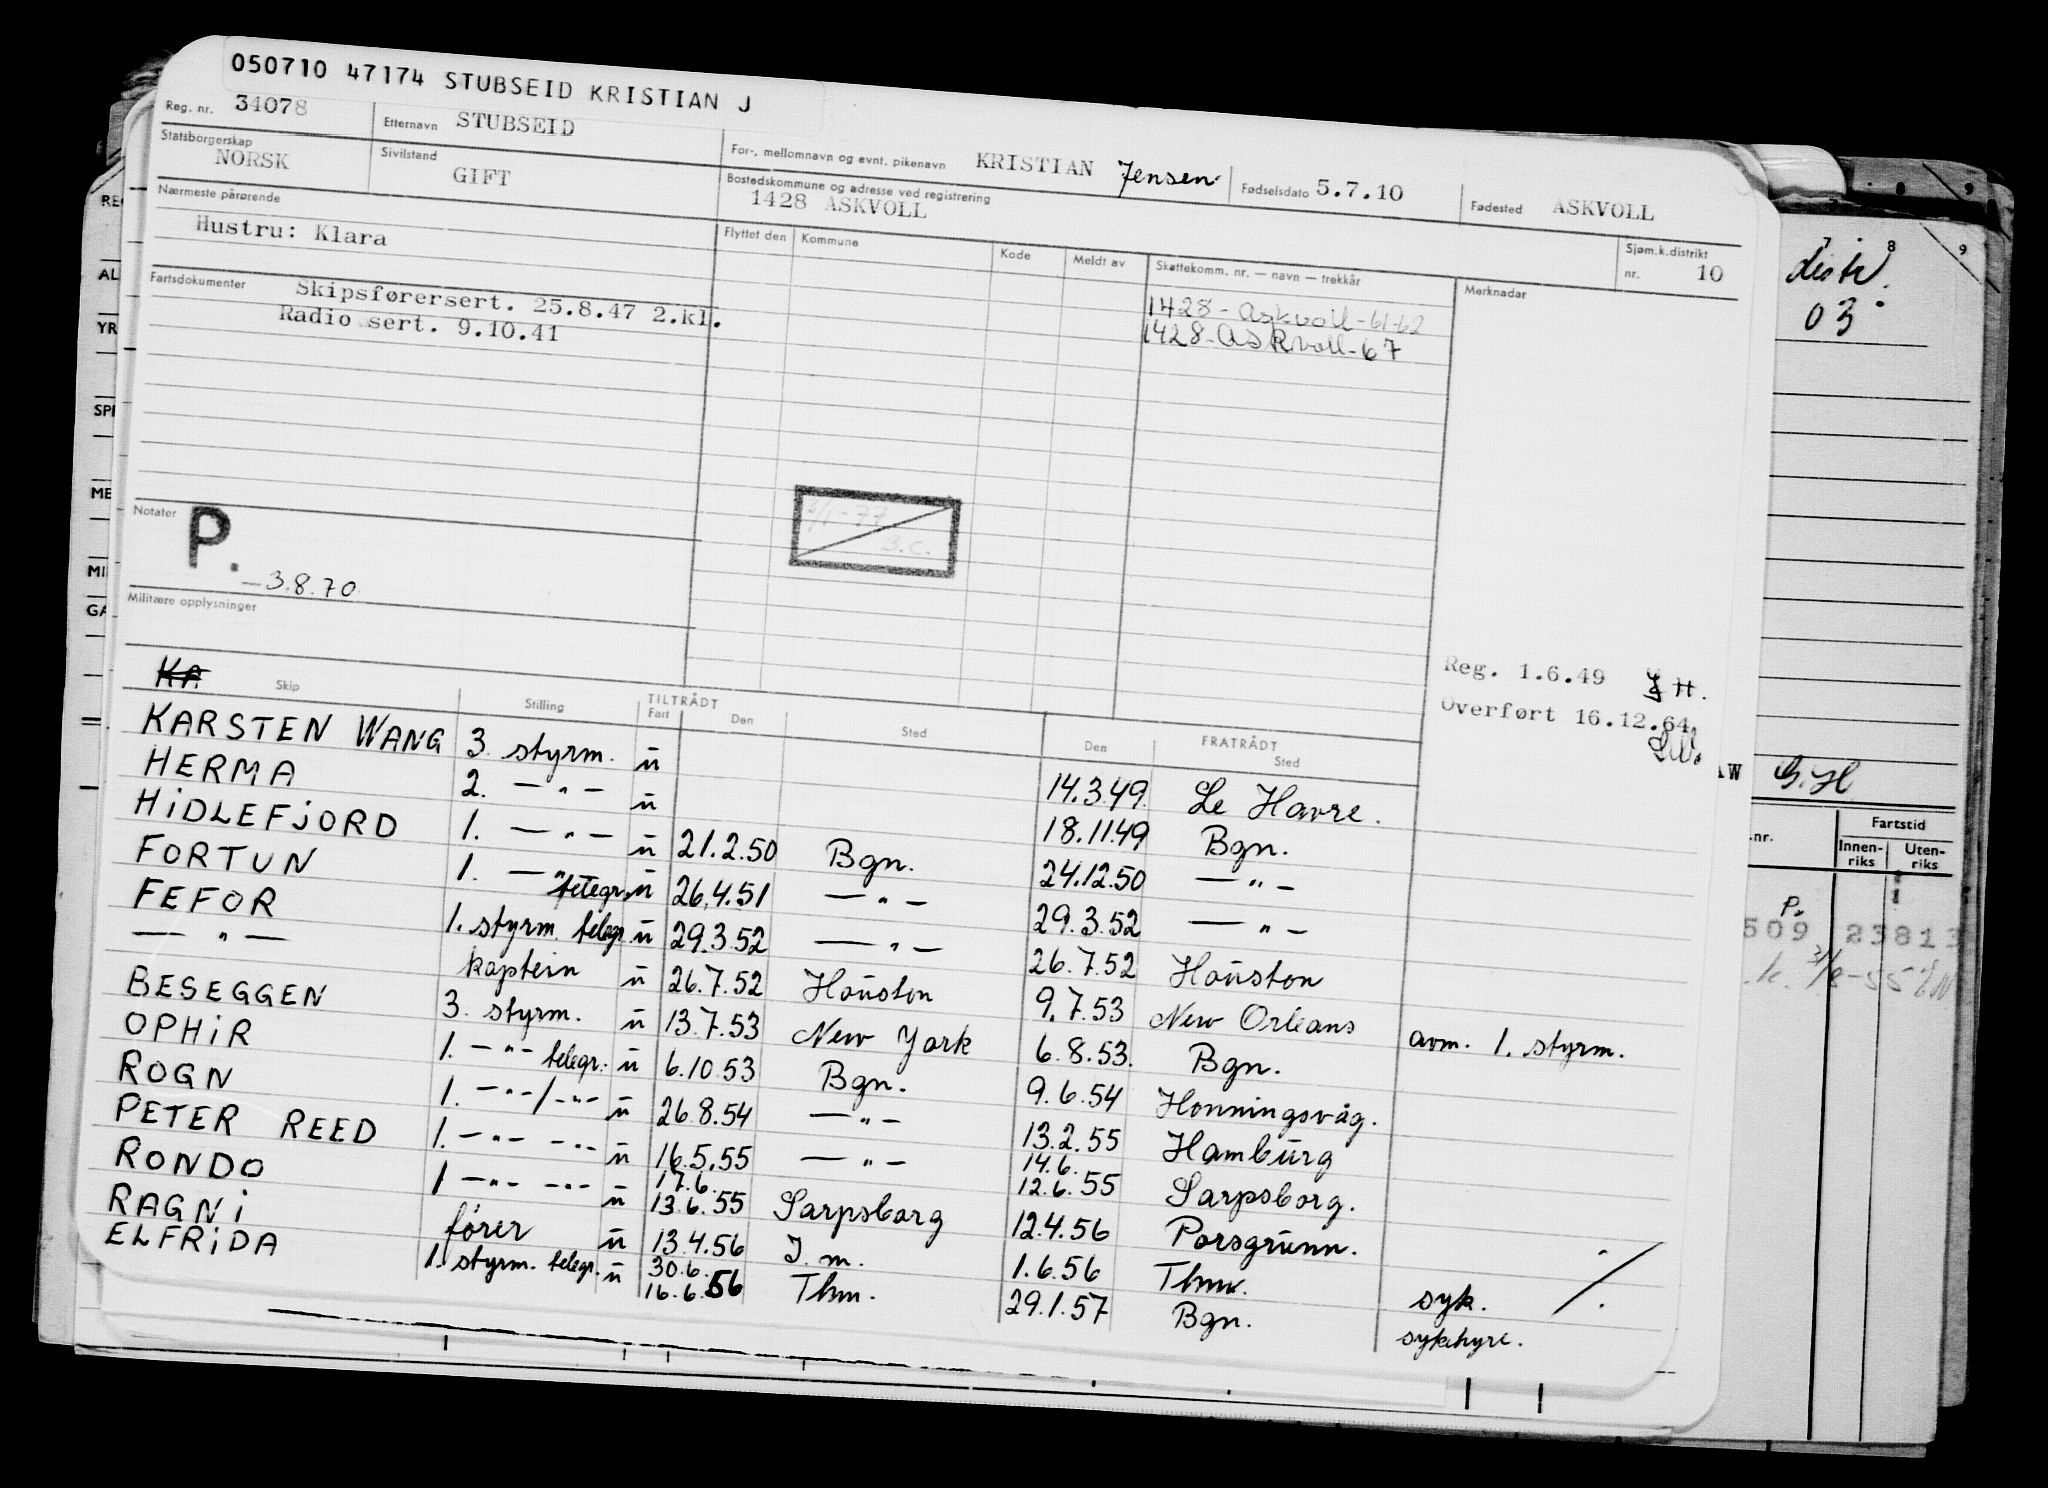 050710 47174 STUBSEID KRISTIAN J
Reg. nr. 34078 Etternavn STUBSEID For-, mellomnavn og evnt. pikenavn KRISTIAN Jensen Fødselsdato 5.7.10 Fødested ASKVOLL
Statsborgerskap NORSK Sivilstand GIFT Bostedskommune og adresse ved registrering 1428 ASKVOLL
Nærmeste pårørende Flyttet den Kommune Kode Meldt av Skattekomm. nr. — navn — trekkår Sjøm.k.distrikt nr. 10
Hustru: Klara Merknader
Fartsdokumenter Skipsførersert. 25.8.47 2.kl. 1428 - Askvoll - 61-62
Radio sert. 9.10.41 1428 - Askvoll - 67
Notater P.
— 3.8.70
3/1-77
B.C.
Militære opplysninger
Reg. 1.6.49
Overført 16.12.64
KA
Skip Stilling TILTRÅDT Fart Den Sted Den FRATRÅDT Sted
KARSTEN WANG 3. styrm. u 14.3.49 Le Havre.
HERMA 2. — " — u 18.11.49 Bgn.
HIDLEFJORD 1. — " — u 21.2.50 Bgn. 24.12.50 — " —
FORTUN 1. — " — telegr. u 26.4.51 — " — 29.3.52 — " —
FEFOR 1. styrm. telegr. u 29.3.52 — " — 26.7.52 Houston
— " — kaptein u 26.7.52 Houston 9.7.53 New Orleans
BESEGGEN 3. styrm. u 13.7.53 New York 6.8.53. Bgn. avm. 1. styrm.
OPHIR 1. — " — telegr. u 6.10.53 Bgn. 9.6.54 Honningsvåg.
ROGN 1. — " — / — " — u 26.8.54 — " — 13.2.55 Hamburg
PETER REED 1. — " — — " — u 16.5.55 — " — 14.6. 12.6.55 Sarpsborg.
RONDO 1 — " — — " — u 17.6. 13.6.55 Sarpsborg 12.4.56 Porsgrunn.
RAGNI fører u 13.4.56 I. m. 1.6.56 Thm. syk.
ELFRIDA 1. styrm. telegr. u 30.6. 16.6.56 Thm. 29.1.57 Bgn. sykehyre.
7 8 9
distr.
03
G.H
.nr. Fartstid
Innen-riks Uten-riks
P.
509 23813
AL
YR
SPI
ME
MI
GA